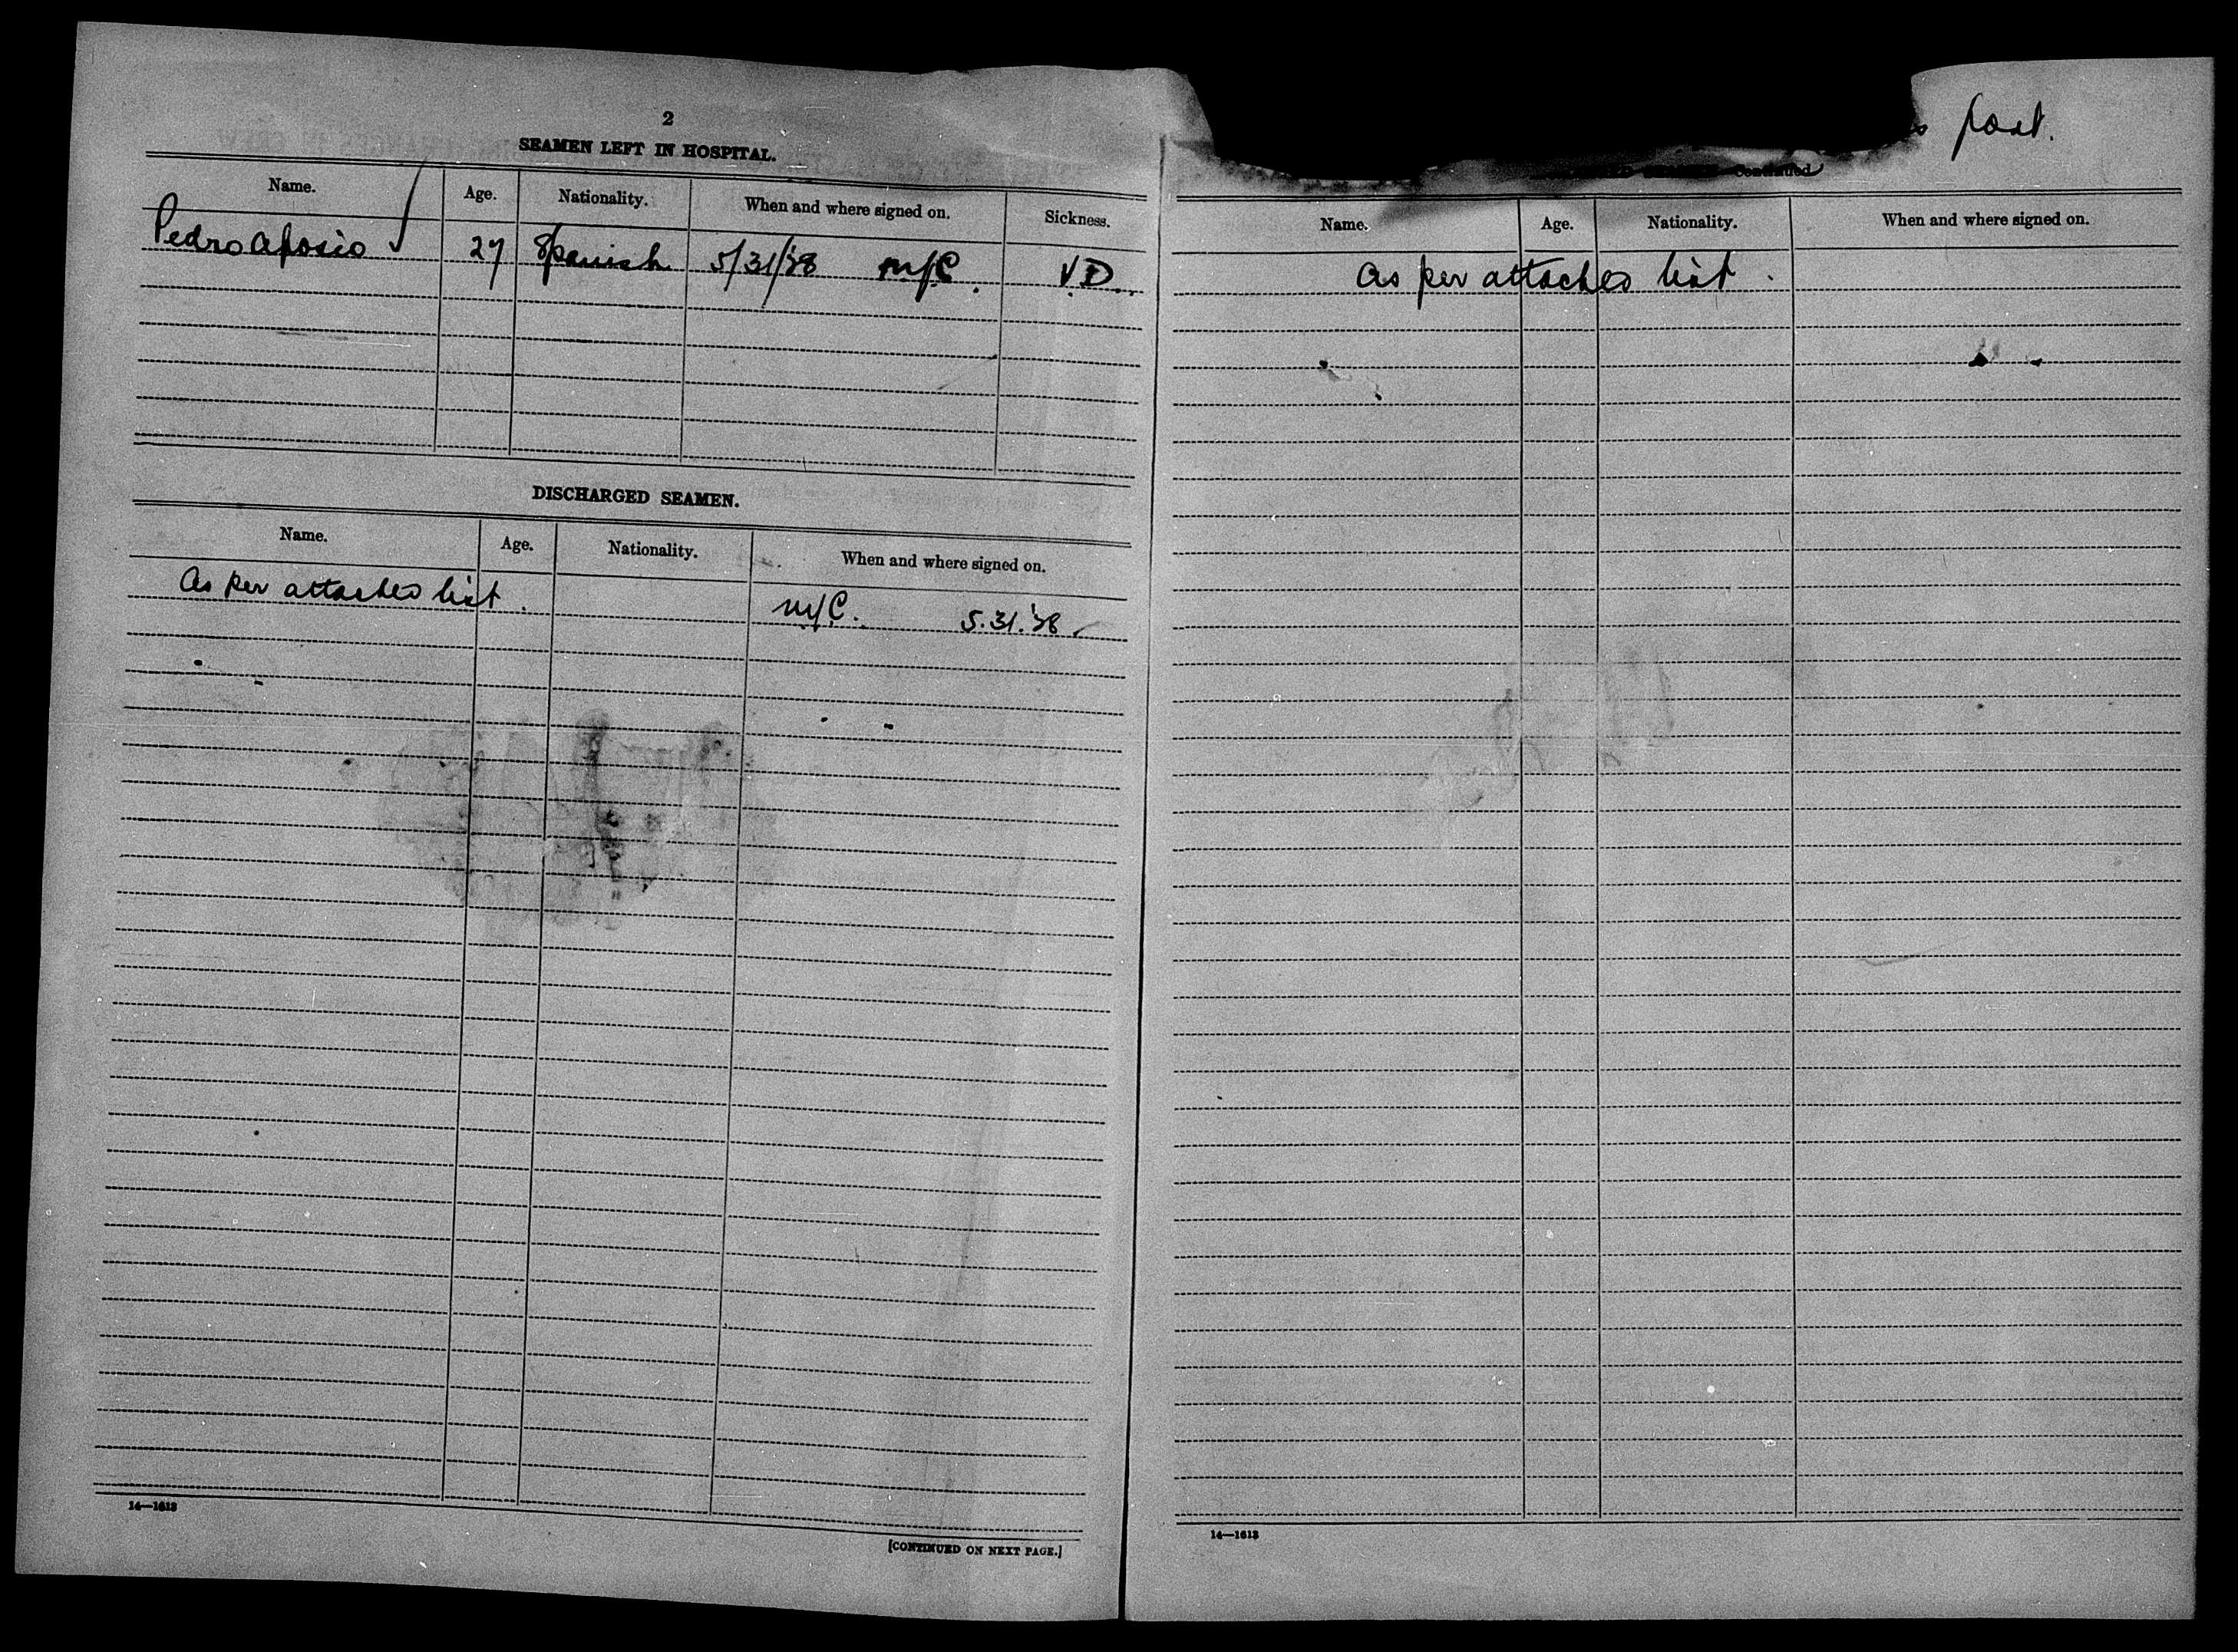 2
SEAMEN LEFT IN HOSPITAL.
Name. Age. Nationality. When and where signed on. Sickness.
Pedro Aposio 27 Spanish 5/31/'38 M/C. V.D.
DISCHARGED SEAMEN.
Name. Age. Nationality. When and where signed on.
As per attached list. M/C. 5.31.'38
14—1613
[CONTINUED ON NEXT PAGE.]
port.
Continued
Name. Age. Nationality. When and where signed on.
As per attached list.
14—1613